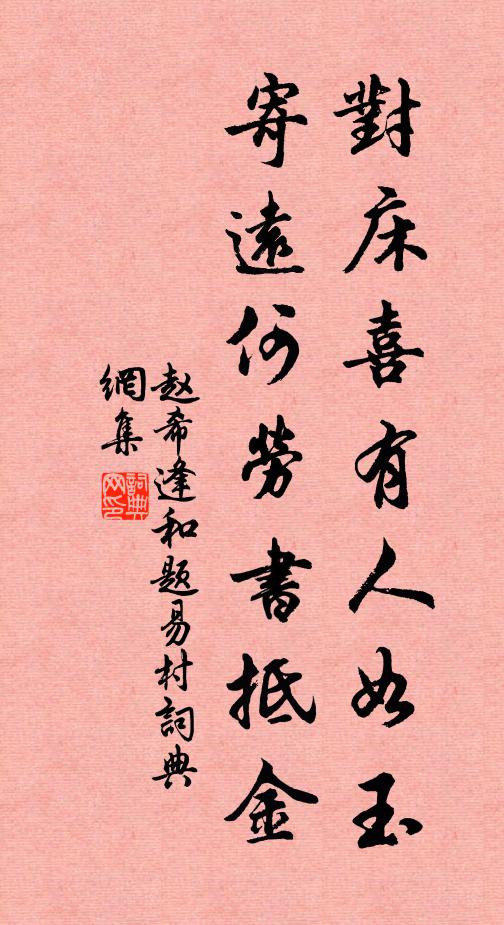 對床喜有人如玉
寄遠何勞書抵金
赵希逢和题易村詞典
網集
詞典
网印